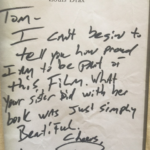 Tom-
I can't begin to
tell you how proud
I am to be part of
this film. What
your sister did with her
book was just simply
Beautiful.
Cheers,